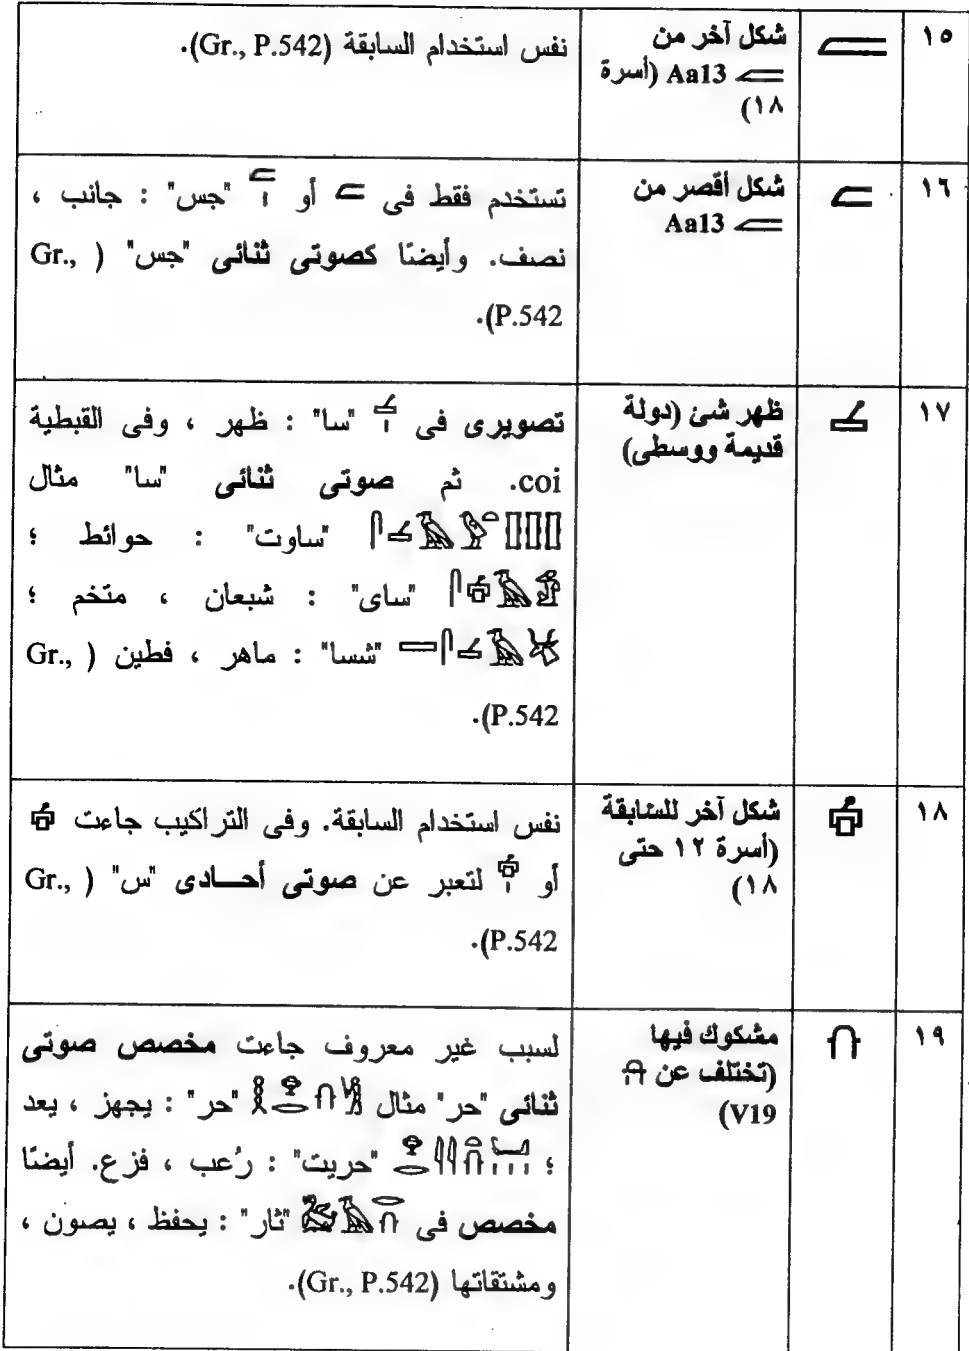 ١٥
شكل آخر من
Aa13 (أسرة
١٨)
نفس استخدام السابقة (Gr., P.542).
١٦
شكل أقصر من
Aa13
تستخدم فقط فى أو "جس" : جانب ،
نصف. وأيضًا كصوتى ثنائى "جس" ( Gr.,
P.542).
١٧
ظهر شئ (دولة
قديمة ووسطى)
تصويرى فى "سا" : ظهر ، وفى القبطية
coi. ثم صوتى ثنائى "سا" مثال
"ساوت" : حوائط ؛
"ساى" : شبعان ، متخم ؛
"شسا" : ماهر ، فطين ( Gr.,
P.542).
١٨
شكل آخر للسابقة
(أسرة ١٢ حتى
١٨)
نفس استخدام السابقة. وفى التراكيب جاءت
أو لتعبر عن صوتى أحــادى "س" ( Gr.,
P.542).
١٩
مشكوك فيها
(تختلف عن
V19)
لسبب غير معروف جاءت مخصص صوتى
ثنائى "حر" مثال "حر" : يجهز ، يعد
؛ "حريت" : رُعب ، فزع. أيضًا
مخصص فى "ثار" : يحفظ ، يصون ،
ومشتقاتها (Gr., P.542).